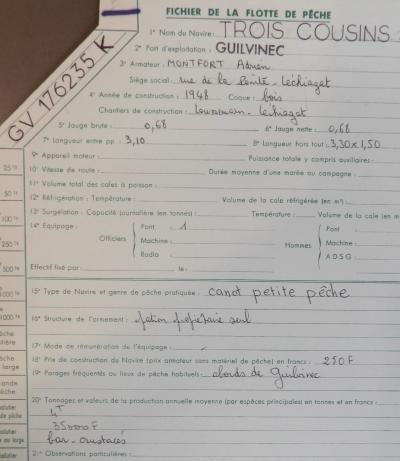 FICHIER DE LA FLOTTE DE PÊCHE
GV 176235 K
1° Nom du Navire: TROIS COUSINS
2° Port d'exploitation: GUILVINEC
3° Armateur: MONTFORT Adrien
Siège social: rue de la Pointe - Léchiagat
4° Année de construction: 1948 Coque: bois
Chantiers de construction: Léchiagat
5° Jauge brute: 0,68 6° Jauge nette: 0,68
7° Longueur entre pp: 3,10 8° Longueur hors tout: 3,30 x 1,50
9° Appareil moteur: Puissance totale y compris auxiliaires:
10° Vitesse de route: Durée moyenne d'une marée ou campagne:
11° Volume total des cales à poisson:
12° Réfrigération: Température: Volume de la cale réfrigérée (en m³)
13° Surgélation: Capacité journalière (en tonnes): Température: Volume de la cale (en m
14° Equipage: Officiers Pont: 1 Hommes Pont:
Machine: Machine:
Radio ADSG:
Effectif fixé par: le:
15° Type de Navire et genre de pêche pratiquée: canot petite pêche
16° Structure de l'armement: patron propriétaire seul
17° Mode de rémunération de l'équipage:
18° Prix de construction du Navire (prix armateur sans matériel de pêche) en francs: 250 F
19° Parages fréquentés ou lieux de pêche habituels: abords de Guilvinec
20° Tonnages et valeurs de la production annuelle moyenne (par espèces principales) en tonnes et en francs:
4T
35000 F
bar - crustacés
21° Observations particulières:
25 Tx
50 Tx
100 Tx
250 Tx
500 Tx
1000 Tx
1000 Tx
êche
tière
êche
large
ande
êche
alutier
de pêche
alutier
au large
alutier